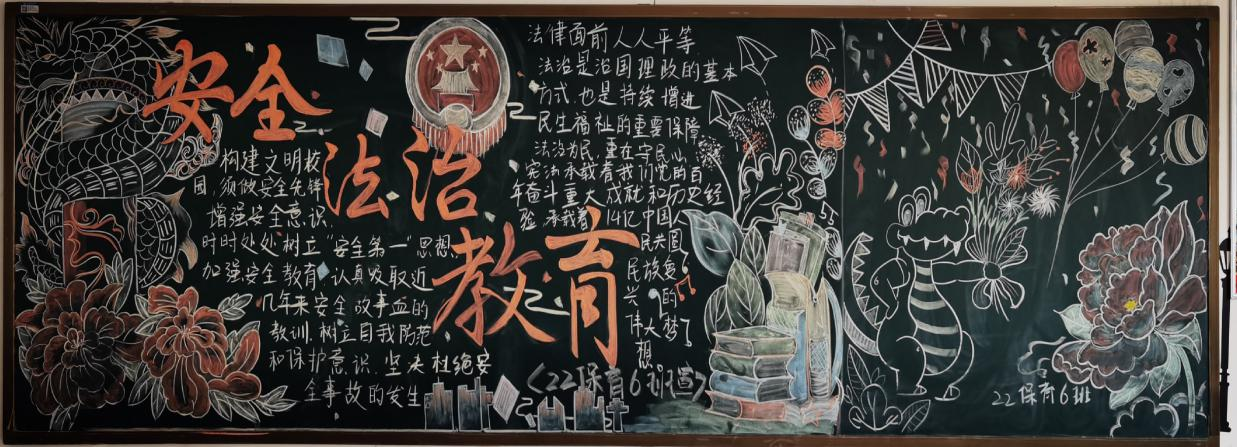 安全
法治
教育
构建文明校
园,须做安全先锋
增强安全意识,
时时处处树立“安全第一”思想,
加强安全教育,认真吸取近
几年来安全故事血的
教训,树立自我防范
和保护意识,坚决杜绝安
全事故的发生
法律面前人人平等
法治是治国理政的基本
方式,也是持续增进
民生福祉的重要保障
法治为民,重在守民心,
宪法承载着我们党的百
年奋斗重大成就和历史经
验,承载着14亿中国人
民共圆
民族复
兴的
伟大梦
想
22保育6班
22保育6班